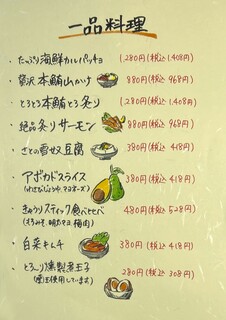 一品料理
・たっぷり海鮮カルパッチョ 1,280円(税込1,408円)
・贅沢本鮪山かけ 880円(税込968円)
・とろとろ本鮪とろ炙り 1,280円(税込1,408円)
・絶品炙りサーモン 880円(税込968円)
・さとの雪奴豆腐 380円(税込418円)
・アボカドスライス 380円(税込418円)
(わさびじょうゆ、マヨネーズ)
・きゅうりスティック食べ比べ 480円(税込528円)
(もろみそ、明カマヨ、梅肉)
・白菜キムチ 380円(税込418円)
・とろ〜り燻製煮玉子 280円(税込308円)
(使用しています)